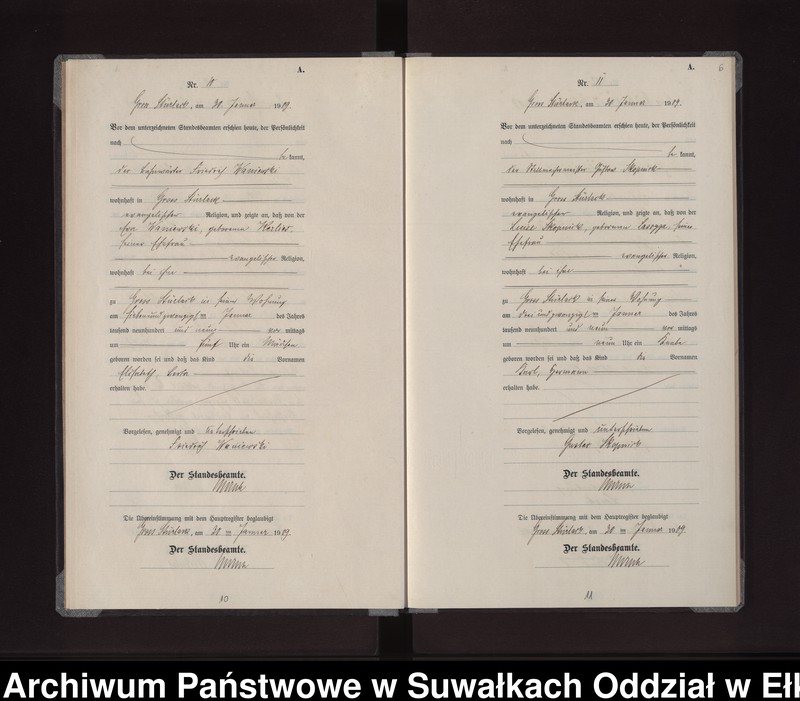 A.
Nr. 10
Gross Stürlack, am 30. Januar 1909.
Vor dem unterzeichneten Standesbeamten erschien heute, der Persönlichkeit
nach
be kannt,
der Friedrich Waniewski
wohnhaft in Gross Stürlack
evangelischer Religion, und zeigte an, daß von der
Eva Waniewski, geborenen
seiner Ehefrau
evangelischer Religion,
wohnhaft bei ihm
zu Gross Stürlack in seiner Wohnung
am siebenundzwanzigten Januar des Jahres
tausend neunhundert und neun vor mittags
um fünf Uhr ein Mädchen
geboren worden sei und daß das Kind die Vornamen
Elisabeth, Berta
erhalten habe.
Vorgelesen, genehmigt und unterschrieben
Friedrich Waniewski
Der Standesbeamte.
Die Übereinstimmung mit dem Hauptregister beglaubigt
Gross Stürlack, am 30 ten Januar 1909.
Der Standesbeamte.
10
A. 6
Nr. 11
Gross Stürlack, am 30. Januar 1909.
Vor dem unterzeichneten Standesbeamten erschien heute, der Persönlichkeit
nach
be kannt,
der Gustav Skopnick
wohnhaft in Gross Stürlack
evangelischer Religion, und zeigte an, daß von der
Luise Skopnick, geborenen seiner
Ehefrau
evangelischer Religion,
wohnhaft bei ihm
zu Gross Stürlack in seiner Wohnung
am dreiundzwanzigten Januar des Jahres
tausend neunhundert und neun vor mittags
um neun Uhr ein Knabe
geboren worden sei und daß das Kind die Vornamen
Karl, Hermann
erhalten habe.
Vorgelesen, genehmigt und unterschrieben
Gustav Skopnick
Der Standesbeamte.
Die Übereinstimmung mit dem Hauptregister beglaubigt
Gross Stürlack, am 30 ten Januar 1909.
Der Standesbeamte.
11
Archiwum Państwowe w Suwałkach Oddział w Ełk